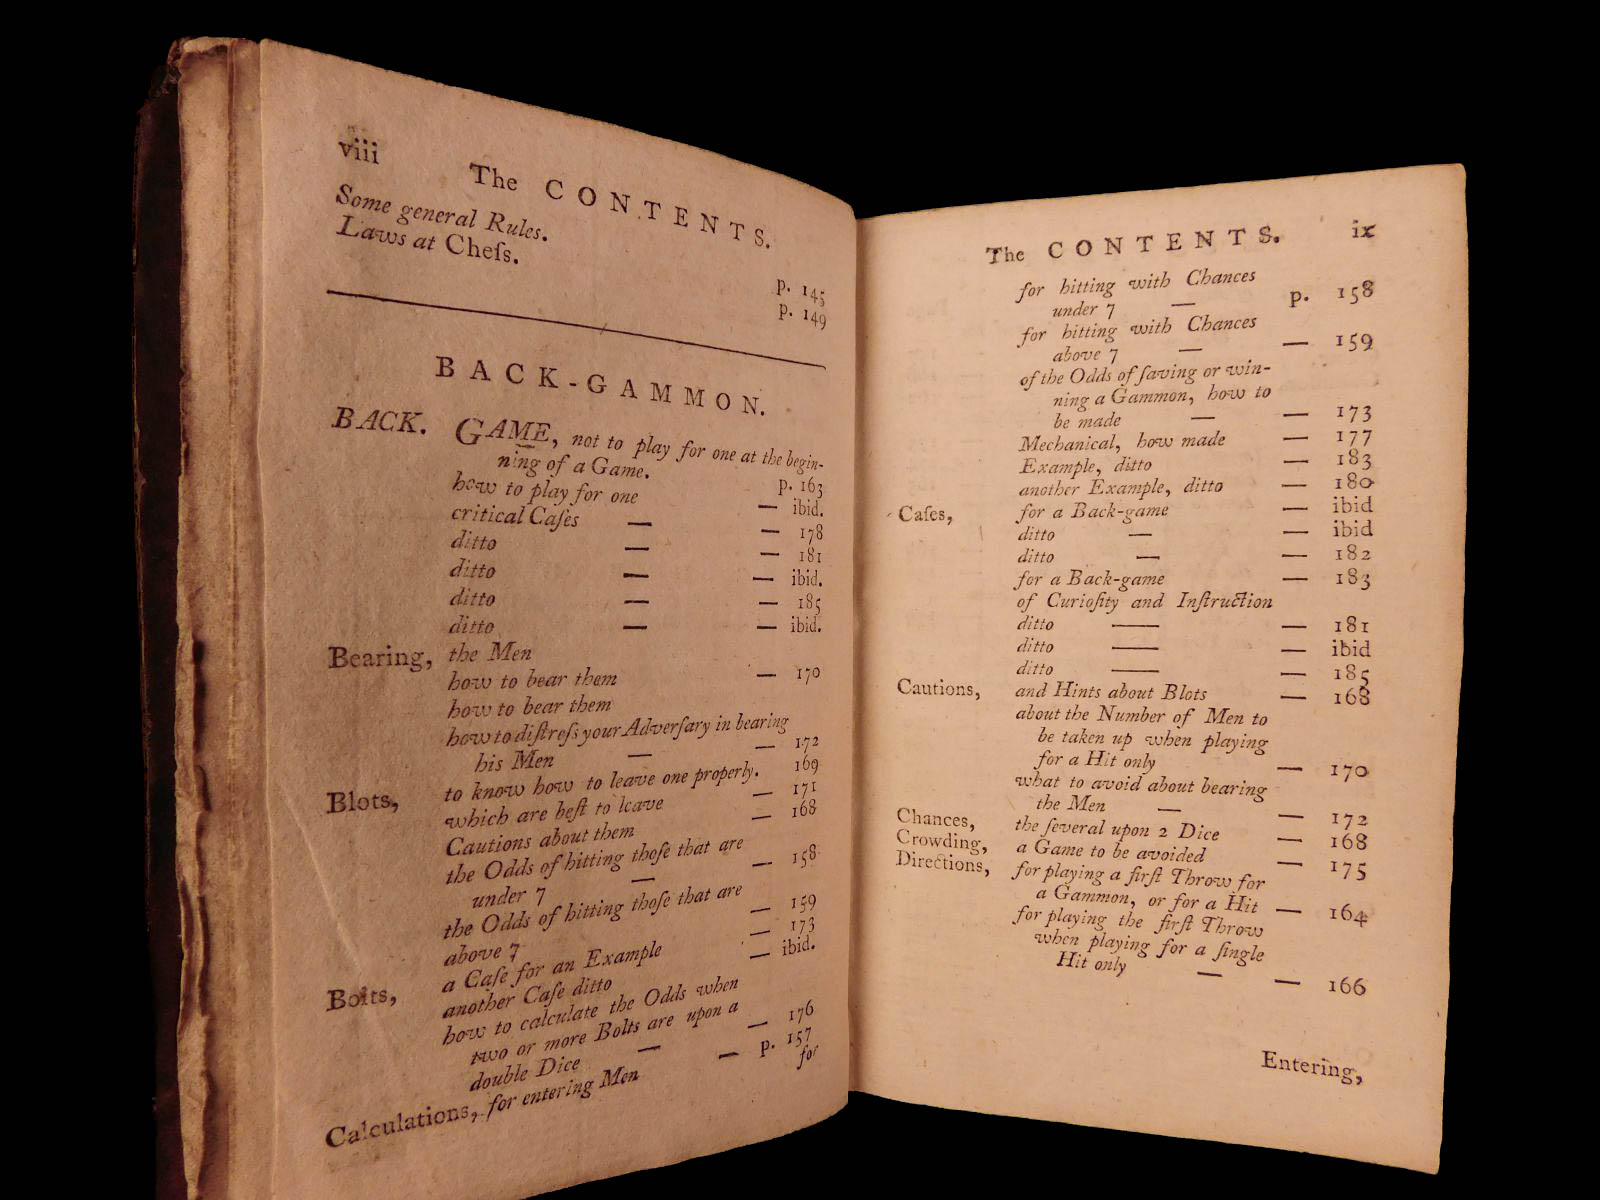 viii The CONTENTS.
Some general Rules. p. 145
Laws at Cheſs. p. 149
BACK-GAMMON.
BACK. GAME, not to play for one at the begin-
ning of a Game. p. 163
how to play for one — ibid.
critical Caſes — — 178
ditto — — 181
ditto — — ibid.
ditto — — 185
ditto — — ibid.
Bearing, the Men
how to bear them — 170
how to bear them
how to diſtreſs your Adverſary in bearing
his Men — — 172
Blots, to know how to leave one properly. 169
which are beſt to leave — 171
Cautions about them — 168
the Odds of hitting thoſe that are
under 7 — — 158
the Odds of hitting thoſe that are
above 7 — 159
a Caſe for an Example — 173
Bolts, another Caſe ditto — ibid.
how to calculate the Odds when
two or more Bolts are upon a
double Dice — — 176
Calculations, for entering Men — p. 157
for
The CONTENTS. ix
for hitting with Chances
under 7 — p. 158
for hitting with Chances
above 7 — — 159
of the Odds of ſaving or win-
ning a Gammon, how to
be made — — 173
Mechanical, how made — 177
Example, ditto — 183
another Example, ditto — 180
Caſes, for a Back-game — ibid
ditto — — ibid
ditto — — 182
for a Back-game — 183
of Curioſity and Inſtruction
ditto — — 181
ditto — — ibid
ditto — — 185
Cautions, and Hints about Blots — 168
about the Number of Men to
be taken up when playing
for a Hit only — 170
what to avoid about bearing
the Men — — 172
Chances, the ſeveral upon 2 Dice — 168
Crowding, a Game to be avoided — 175
Directions, for playing a firſt Throw for
a Gammon, or for a Hit — 164
for playing the firſt Throw
when playing for a ſingle
Hit only — — 166
Entering,